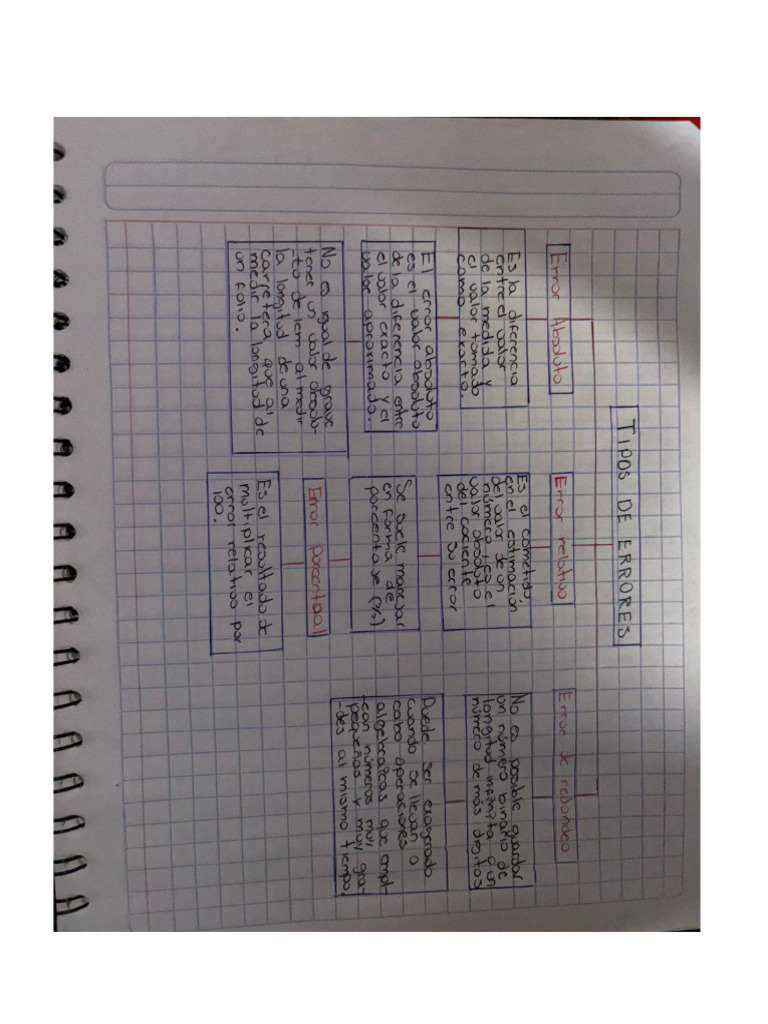 TIPOS DE ERRORES
Error Absoluto
Es la diferencia
entre el valor
de la medida y
el valor tomado
como exacto.
El error absoluto
es el valor absoluto
de la diferencia entre
el valor exacto y el
valor aproximado.
No es igual de grave
tener un valor absolu-
-to de 1cm al medir
la longitud de una
carretera que al
medir la longitud de
un folio.
Error relativo
Es el cometido
en el estimación
del valor de un
número, es el
valor absoluto
del cociente
entre su error
Se suele manejar
en forma de
porcentaje (%)
Error Porcentual
Es el resultado de
multiplicar el
error relativo por
100.
Error de redondeo
No es posible guardar
un número binario de
longitud infinita o un
número de más dígitos
Puede ser exagerado
cuando se llevan a
cabo operaciones
algebraicas que empl-
-ean números muy
pequeños y muy gra-
-des al mismo tiempo.